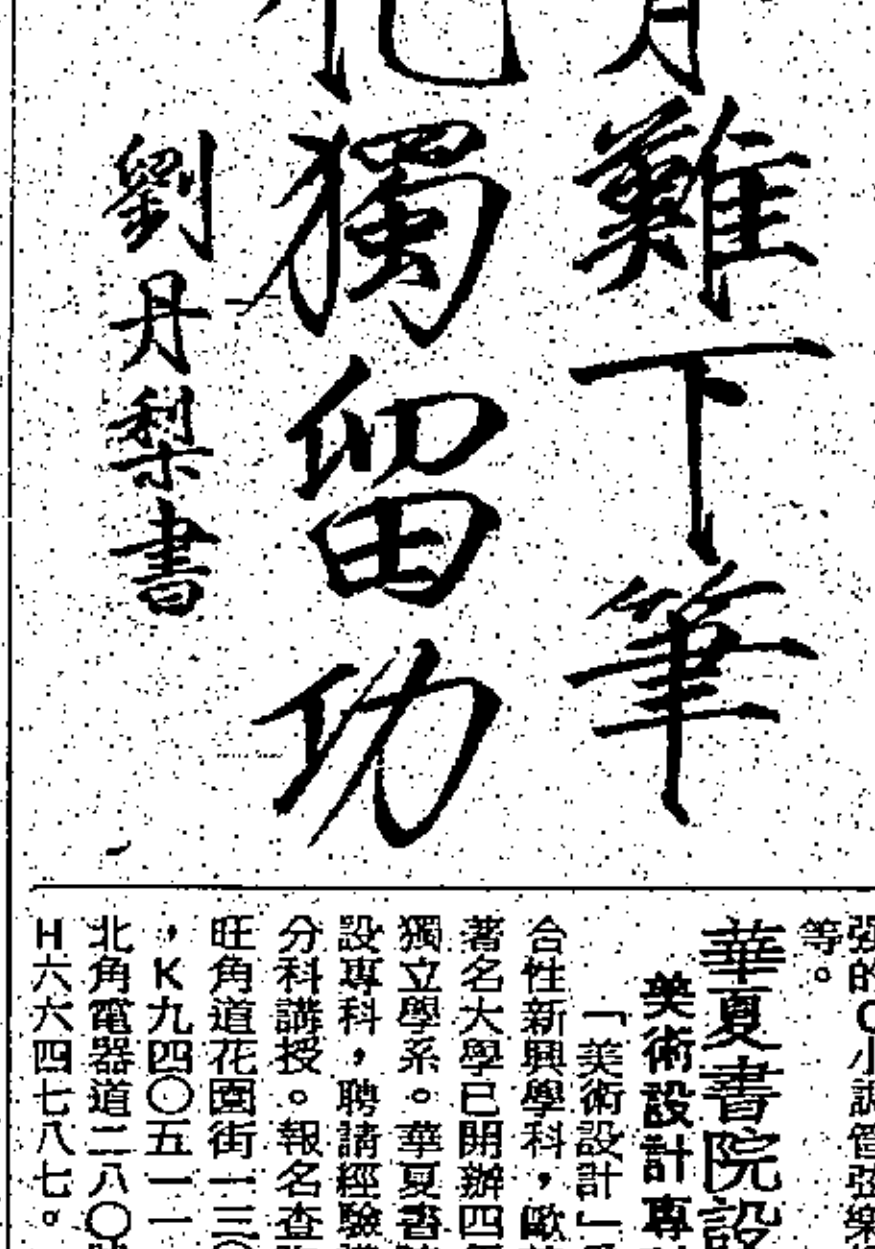 難下筆
獨留功
劉丹梨書
强的C小調管弦樂
等。
華夏書院設
美術設計專
「美術設計」
合性新興學科，歐
著名大學已開辦四
獨立學系。華夏書
設專科，聘請經驗
分科講授。報名查
旺角道花園街一三〇
，K九四〇五一一
北角電器道二八〇號
H六六四七八七。